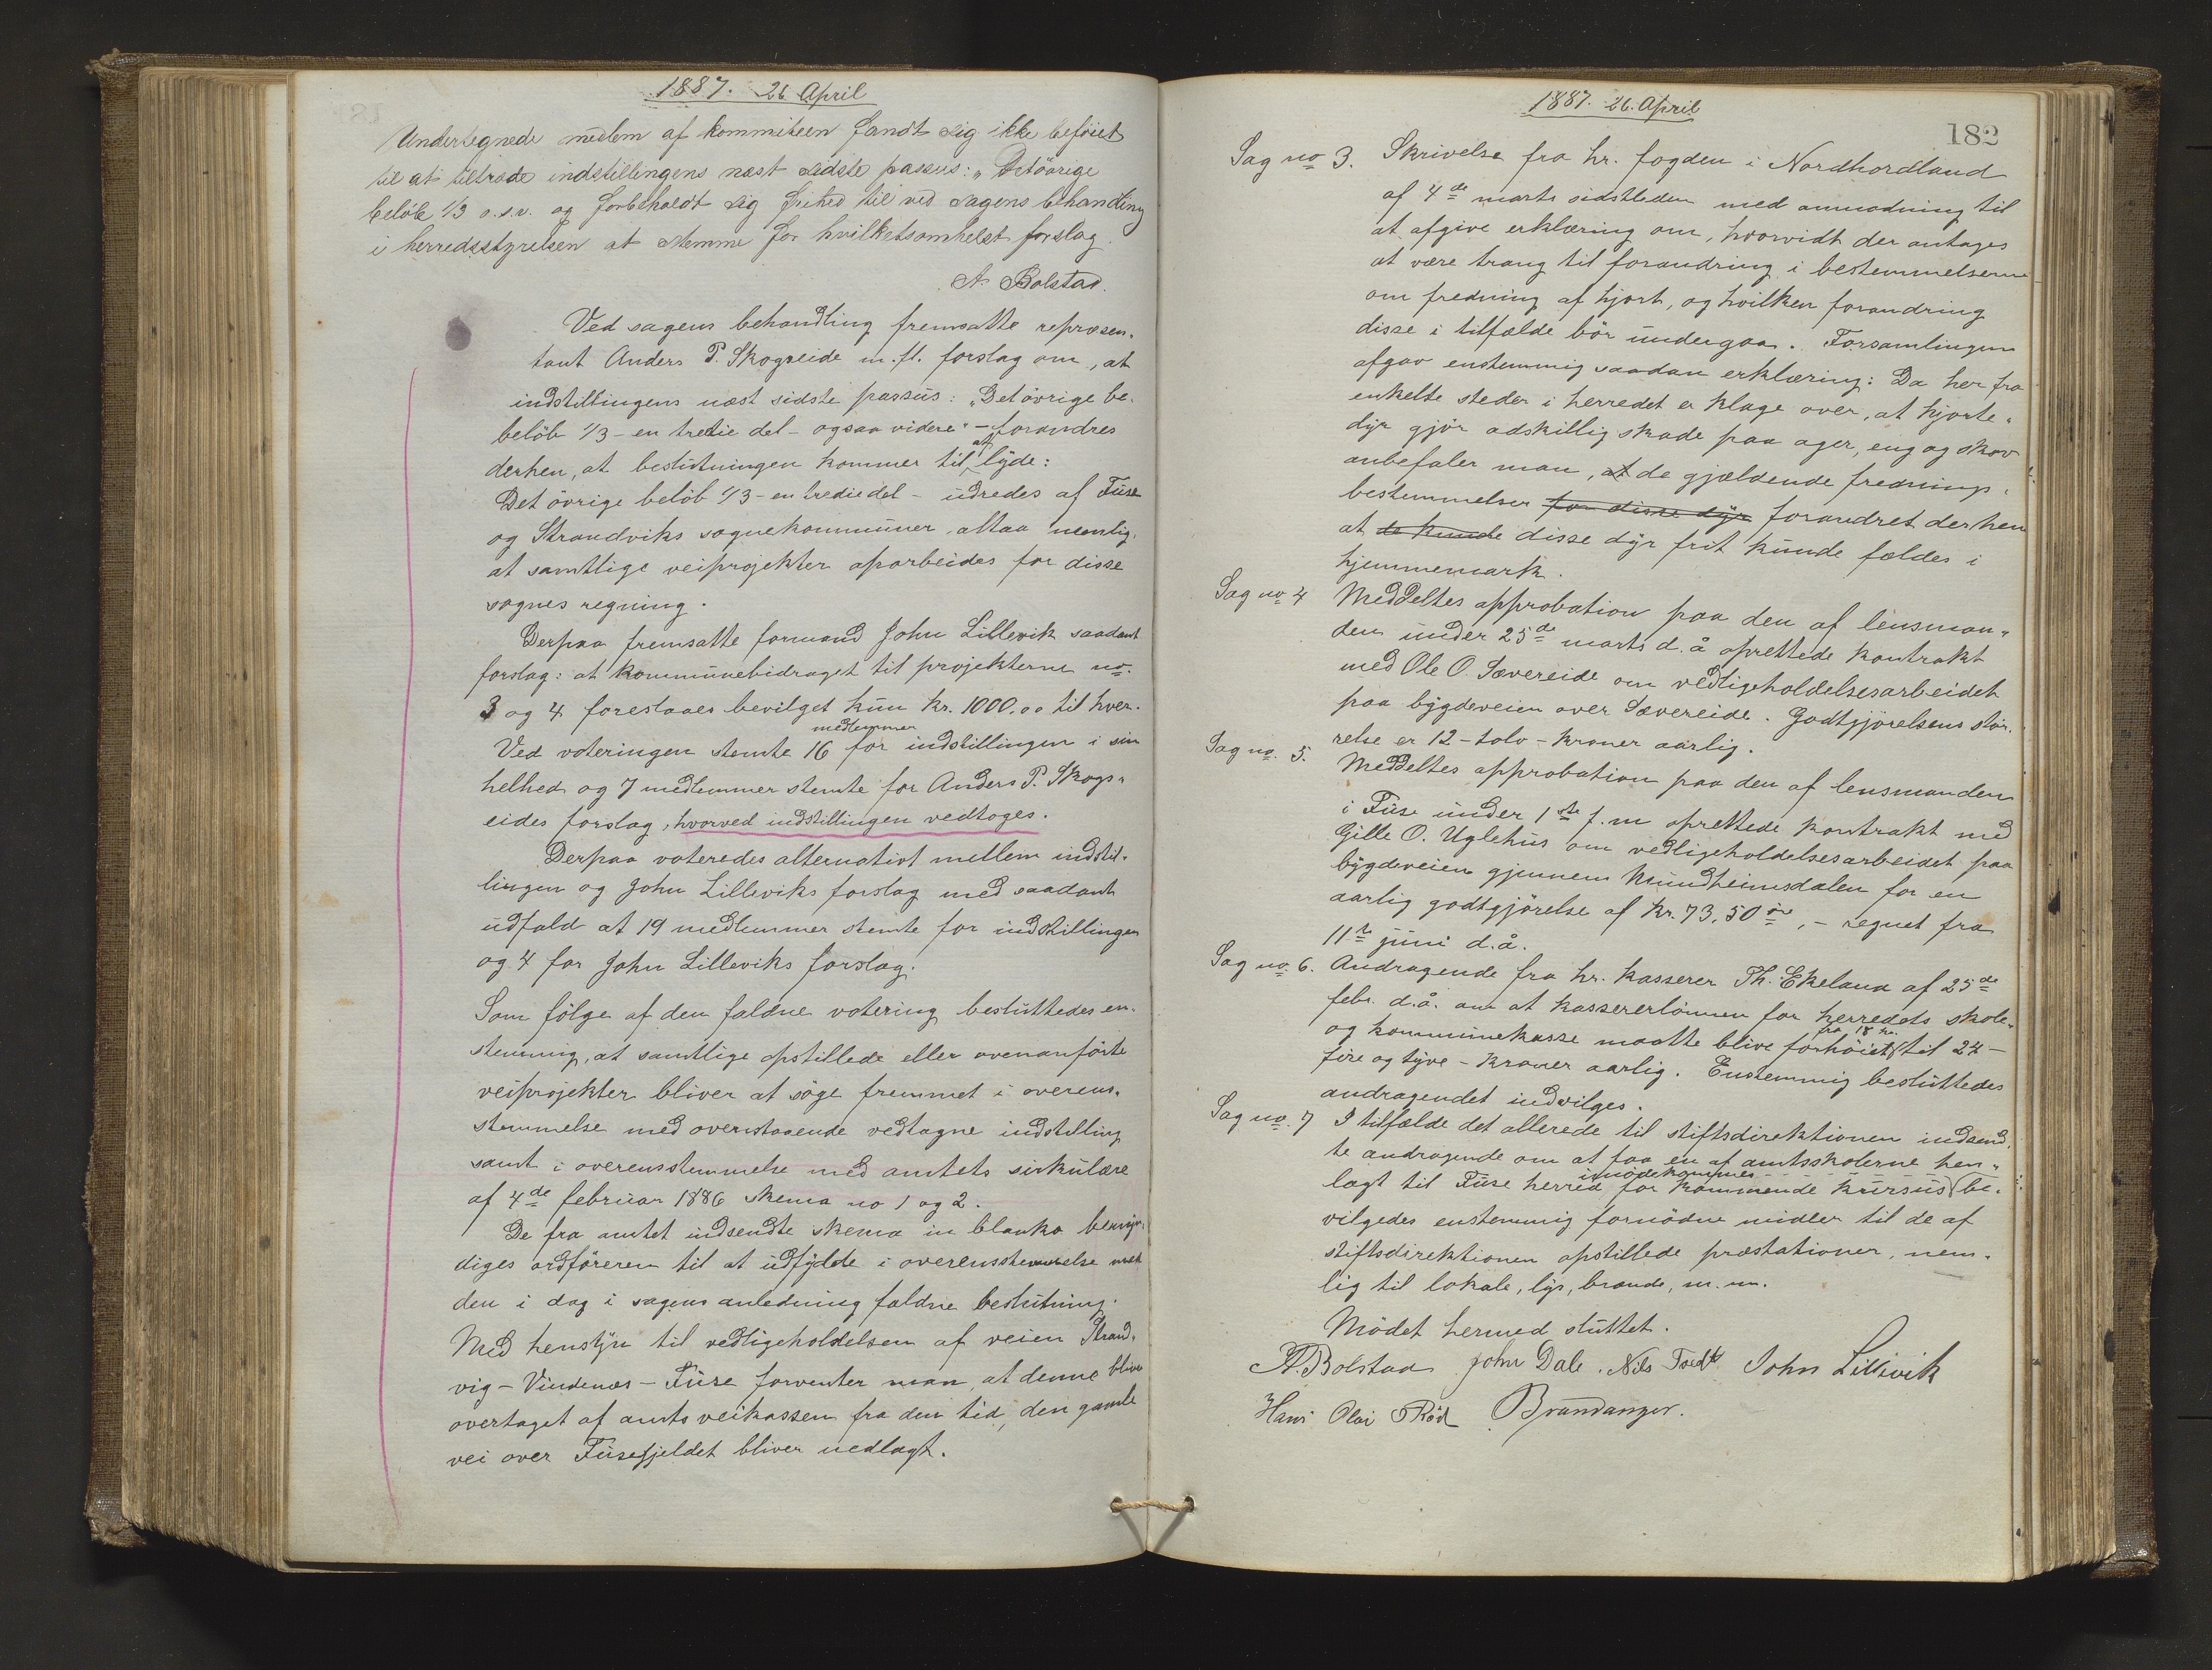 1887. 26 April
Undertegnede medlem af kommiteen fandt sig ikke beföiet
til at tiltræde indstillingens næst sidste passus: „Det övrige
belöb 1/3 o.s.v. og forbeholdt sig frihed til ved sagens behandling
i herredsstyrelsen at stemme for hvilketsomhelst forslag.
A. Bolstad.
Ved sagens behandling fremsatte repræsen-
tant Anders P. Skogseide m. fl. forslag om, at
indstillingens næst sidste passus: „Det övrige be-
belöb 1/3 - en tredie del - ogsaa videre" - forandres
derhen, at beslutningen kommer til at lyde:
Det övrige belöb 1/3 - en trediedel - udredes af Fuse
og Strandviks sognekommuner altaa nemlig,
at samtlige veiprojekter oparbeides for disse
sognes regning.
Derpaa fremsatte formand John Lillevik saadant
forslag: at kommunebidraget til projekterne no.
3 og 4 foreslaaes bevilget kun kr. 1000.00 til hver.
Ved voteringen stemte 16 medlemmer for indstillingen i sin
helhed og 7 medlemmer stemte for Anders P. Skogs-
eides forslag, hvorved indstillingen vedtoges.
Derpaa voteredes alternativt mellem indstil-
lingen og John Lilleviks forslag med saadant
udfald at 19 medlemmer stemte for indstillingen
og 4 for John Lilleviks forslag.
Som fölge af den faldne votering besluttedes en-
stemmig, at samtlige opstillede eller ovenanförte
veiprojekter bliver at söge fremmet i overens-
stemmelse med ovenstaaende vedtagne indstilling
samt i overensstemmelse med amtets sirkulære
af 4de februar 1886 skema no 1 og 2.
De fra amtet indsendte skema in blanko bemyn-
diges ordföreren til at udfylde i overensstemmelse med
den i dag i sagens anledning faldne beslutning.
Med hensyn til vedligeholdelsen af veien Strand-
vig - Vindenæs - Fuse forventer man, at denne bliver
overtaget af amtsveikassen fra den tid, den gamle
vei over Fusefjeldet bliver nedlagt.
1887. 26. April
182
Sag no 3. Skrivelse fra hr. fogden i Nordhordland
af 4de marts sidstleden med anmodning til
at afgive erklæring om, hvorvidt der antages
at være trang til forandring i bestemmelserne
om fredning af hjort, og hvilken forandring
disse i tilfælde bör undergaa. Forsamlingen
afgav enstemmig saadan erklæring: Da her fra
enkelte steder i herredet er klage over, at hjorte-
dyr gjör adskillig skade paa ager, eng og skov
anbefaler man, at de gjældende frednings-
bestemmelser for disse dyr forandret derhen
at de kunde disse dyr frit kunde fældes i
hjemmemark.
Sag no 4 Meddeltes approbation paa den af lensman-
den under 25de marts d.å oprettede kontrakt
med Ole O. Sævereide om vedligeholdelsesarbeidet
paa bygdeveien over Sævereide. Godtgjörelsens stör-
relse er 12 - tolv - kroner aarlig.
Sag no. 5. Meddeltes approbation paa den af lensmanden
i Fuse under 1ste f. m oprettede kontrakt med
Gitle O. Uglehus om vedligeholdelsesarbeidet paa
bygdeveien gjennem Mundheimsdalen for en
aarlig godtgjörelse af kr. 73,50 öre, - regnet fra
11te juni d.å.
Sag no. 6. Andragende fra hr. kasserer Th. Ekeland af 25de
febr. d.å. om at kassererlönnen for herredets skole-
og kommunekasse maatte blive forhöiet fra 18 kr. til 24 -
fire og tyve - kroner aarlig. Enstemmig besluttedes
andragendet indvilges.
Sag no. 7 I tilfælde det allerede til stiftsdirektionen indsend-
te andragende om at faa en af amtsskolerne hen-
lagt til Fuse herred for kommende kursus imödekommes be-
vilgedes enstemmig fornödne midler til de af
stiftsdirektionen opstillede præstationer, nem-
lig til lokale, lys, brænde, m. m.
Mödet hermed sluttet.
A. Bolstad John Dale. Nils Tvedt John Lillevik
Hans Olai Röd Brandanger.